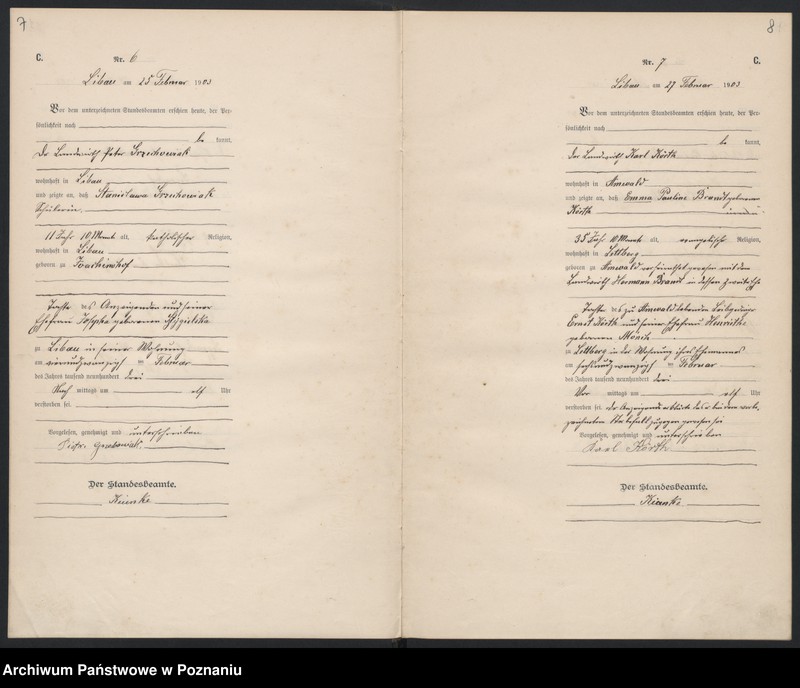 7
C.
Nr. 6
Libau am 25 Februar 1903
Vor dem unterzeichneten Standesbeamten erschien heute, der Per-
sönlichkeit nach
be kannt,
der Landwirth Peter Grzechowiak
wohnhaft in Libau
und zeigte an, daß Stanislawa Grzechowiak
Schülerin
11 Jahr 10 Monate alt, katholischer Religion,
wohnhaft in Libau
geboren zu Joachimshof
Tochter des Anzeigenden und seiner
Ehefrau Josepha geborenen
zu Libau in seiner Wohnung
am vierundzwanzigsten Februar
des Jahres tausend neunhundert drei
Nach mittags um elf Uhr
verstorben sei.
Vorgelesen, genehmigt und unterschrieben
Piotr Grzechowiak.
Der Standesbeamte.
8
Nr. 7
C.
Libau am 27 Februar 1903
Vor dem unterzeichneten Standesbeamten erschien heute, der Per-
sönlichkeit nach
be kannt,
der Landwirth Karl Körth
wohnhaft in Arnwald
und zeigte an, daß Emma Pauline Brandt geborene
Körth
35 Jahr 10 Monate alt, evangelischer Religion,
wohnhaft in Lettberg
geboren zu Arnwald verheirathet gewesen mit dem
Landwirth Hermann Brandt in dessen zweiter Ehe
Tochter des zu Arnwald lebenden
Ernst Körth und seiner Ehefrau Henriette
geborenen
zu Lettberg in der Wohnung ihres Ehemannes
am sechsundzwanzigsten Februar
des Jahres tausend neunhundert drei
Vor mittags um elf Uhr
verstorben sei. der Anzeigende erklärte daß er bei dem vorbe-
zeichneten Sterbefall zugegen gewesen sei
Vorgelesen, genehmigt und unterschrieben
Karl Körth
Der Standesbeamte.
Archiwum Państwowe w Poznaniu